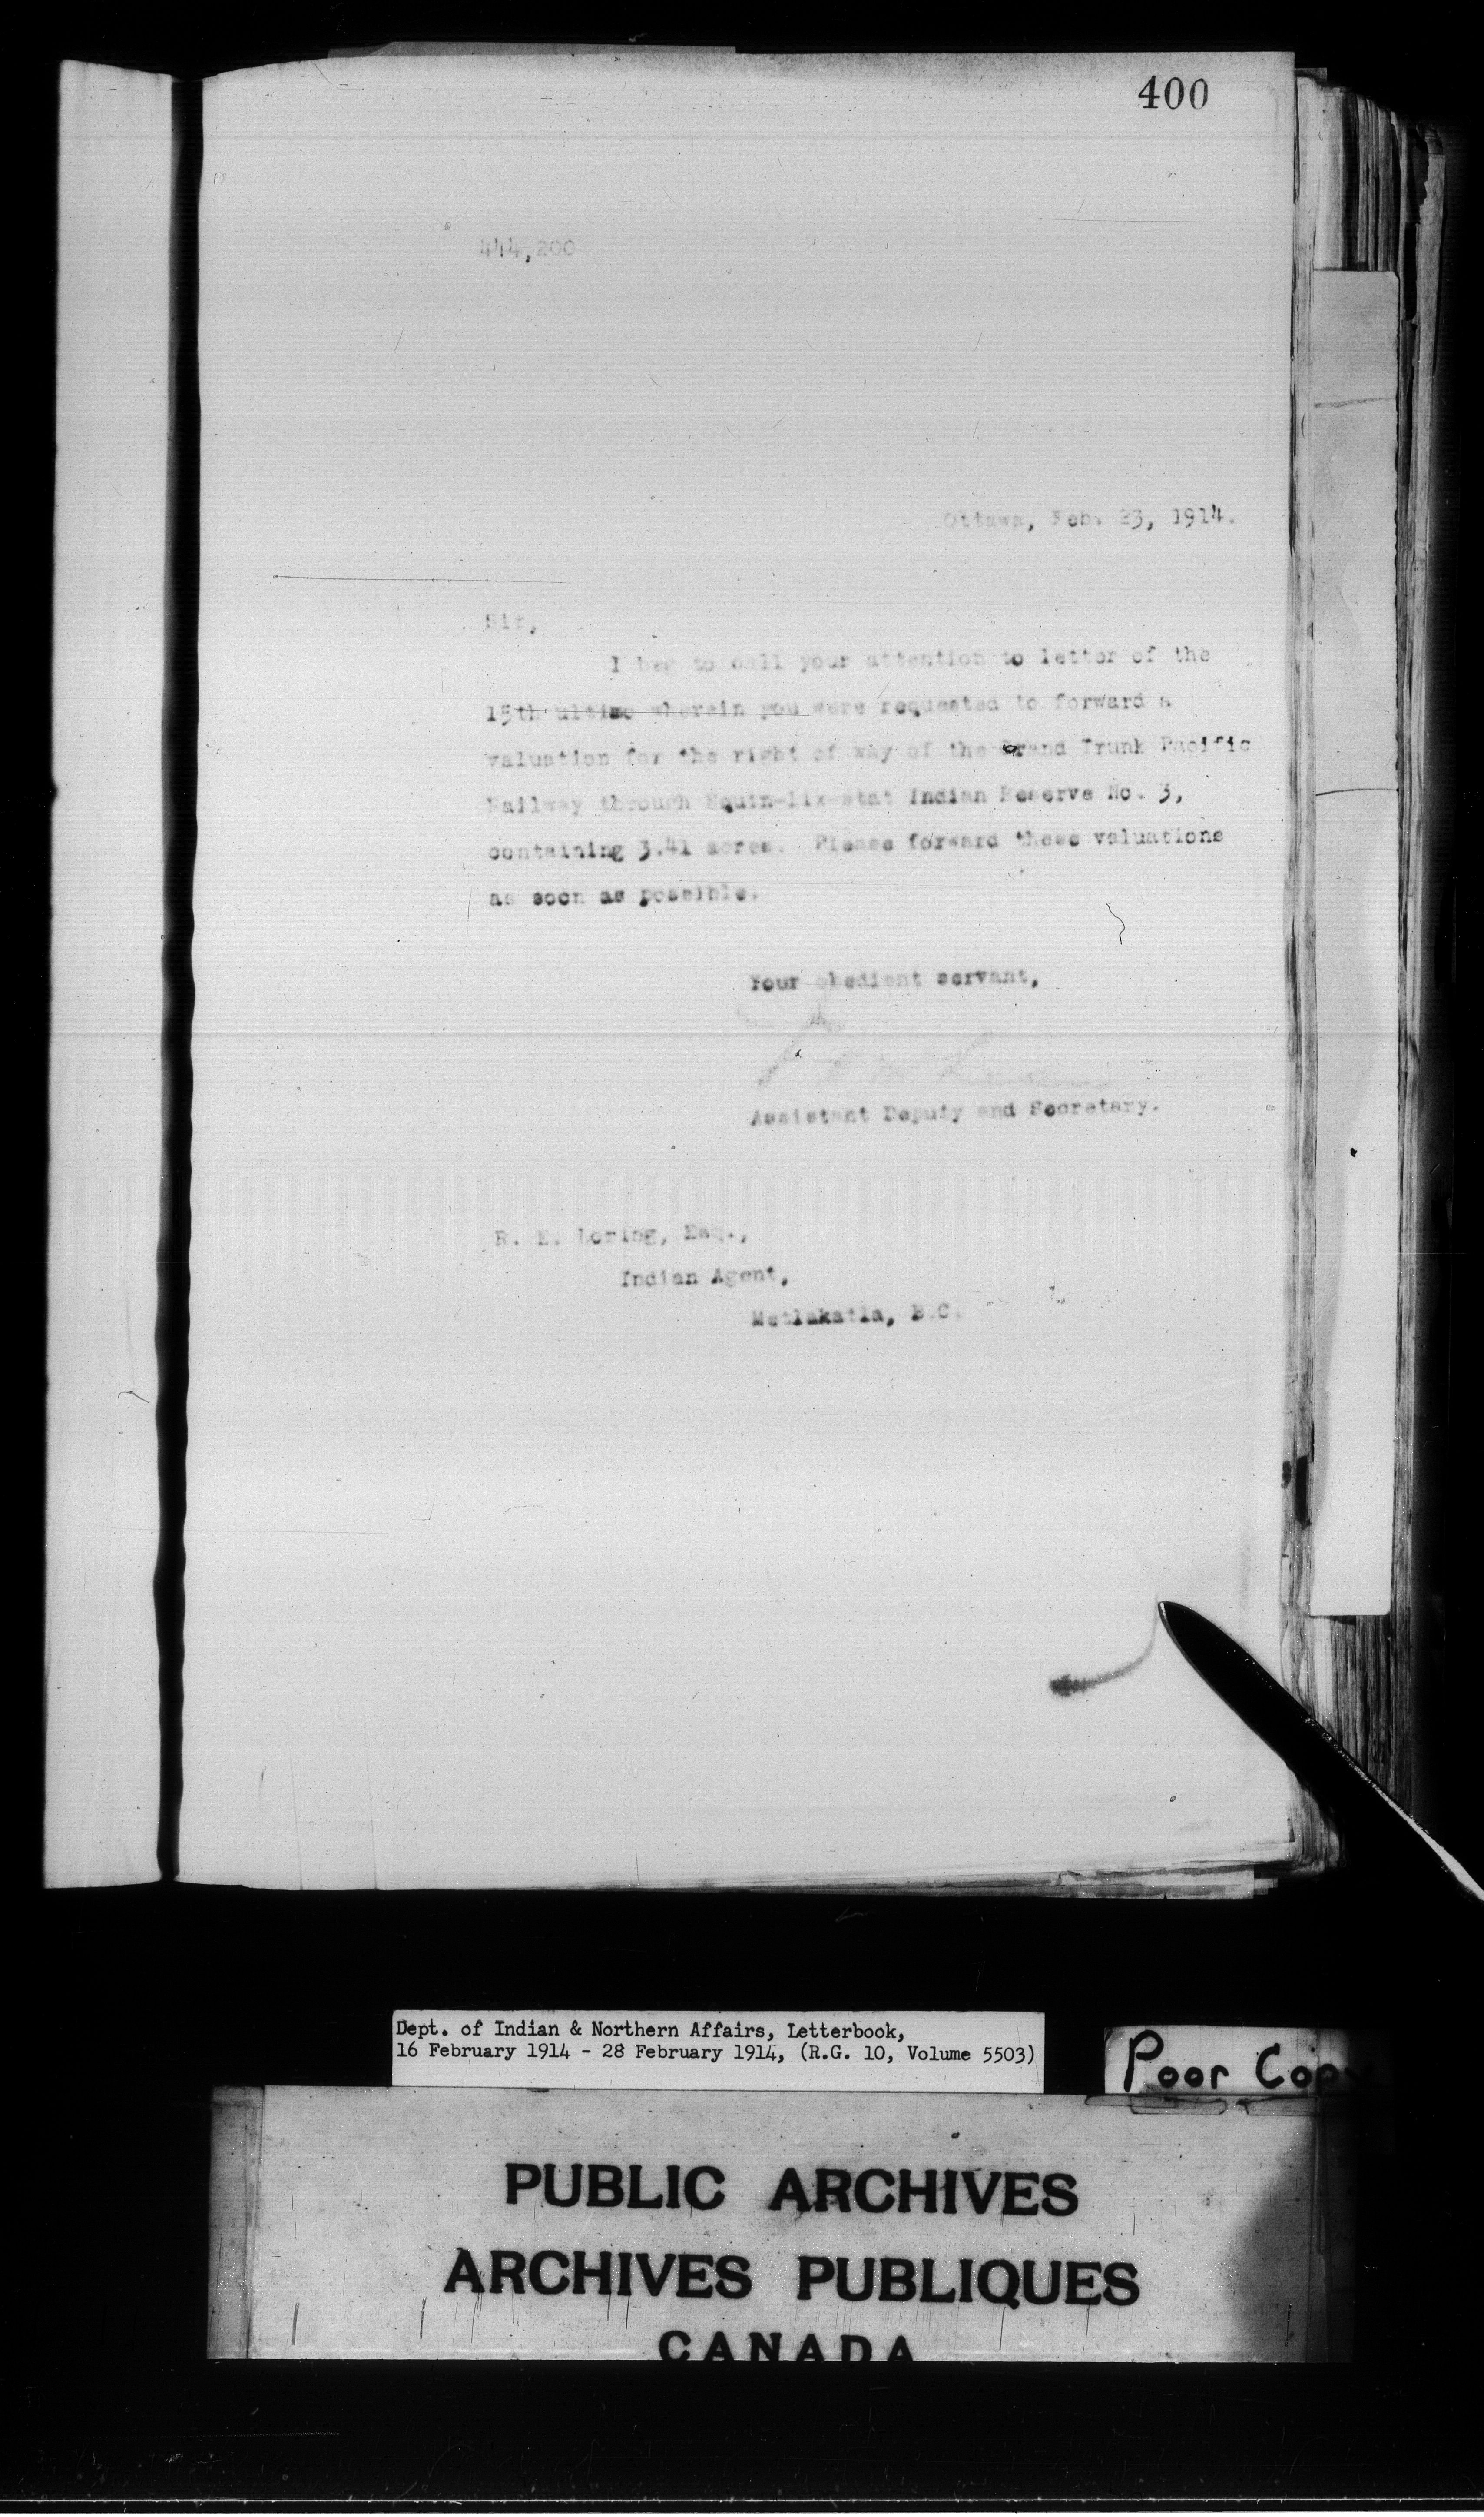 400
444,200
Ottawa, Feb. 23, 1914.
Sir,
I beg to call your attention to letter of the
15th ultimo wherein you were requested to forward a
valuation for the right of way of the Grand Trunk Pacific
Railway through Squin-lix-stat Indian Reserve No. 3,
containing 3.41 acres. Please forward these valuations
as soon as possible.
Your obedient servant,
Assistant Deputy and Secretary.
R. E. Loring, Esq.,
Indian Agent,
Metlakatla, B.C.
Dept. of Indian & Northern Affairs, Letterbook,
16 February 1914 - 28 February 1914, (R.G. 10, Volume 5503)
Poor Copy
PUBLIC ARCHIVES
ARCHIVES PUBLIQUES
CANADA